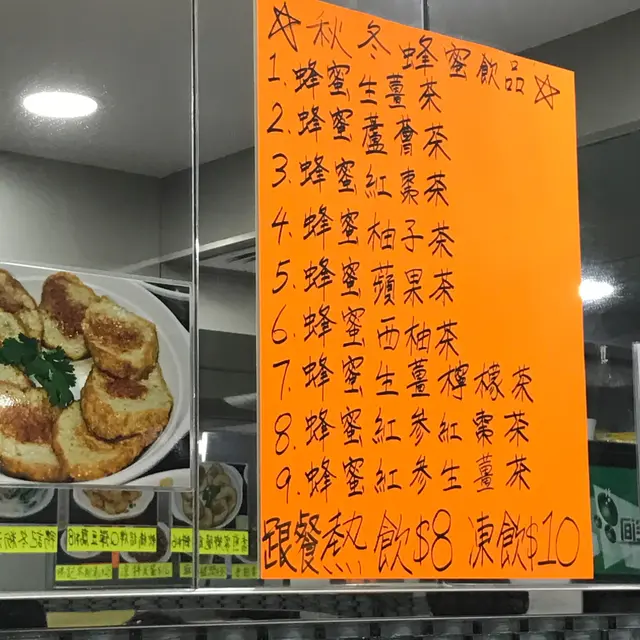 ☆秋冬蜂蜜飲品☆
1.蜂蜜生薑茶
2.蜂蜜蘆薈茶
3.蜂蜜紅棗茶
4.蜂蜜柚子茶
5.蜂蜜蘋果茶
6.蜂蜜西柚茶
7.蜂蜜生薑檸檬茶
8.蜂蜜紅參紅棗茶
9.蜂蜜紅參生薑茶
跟餐熱飲$8 凍飲$10